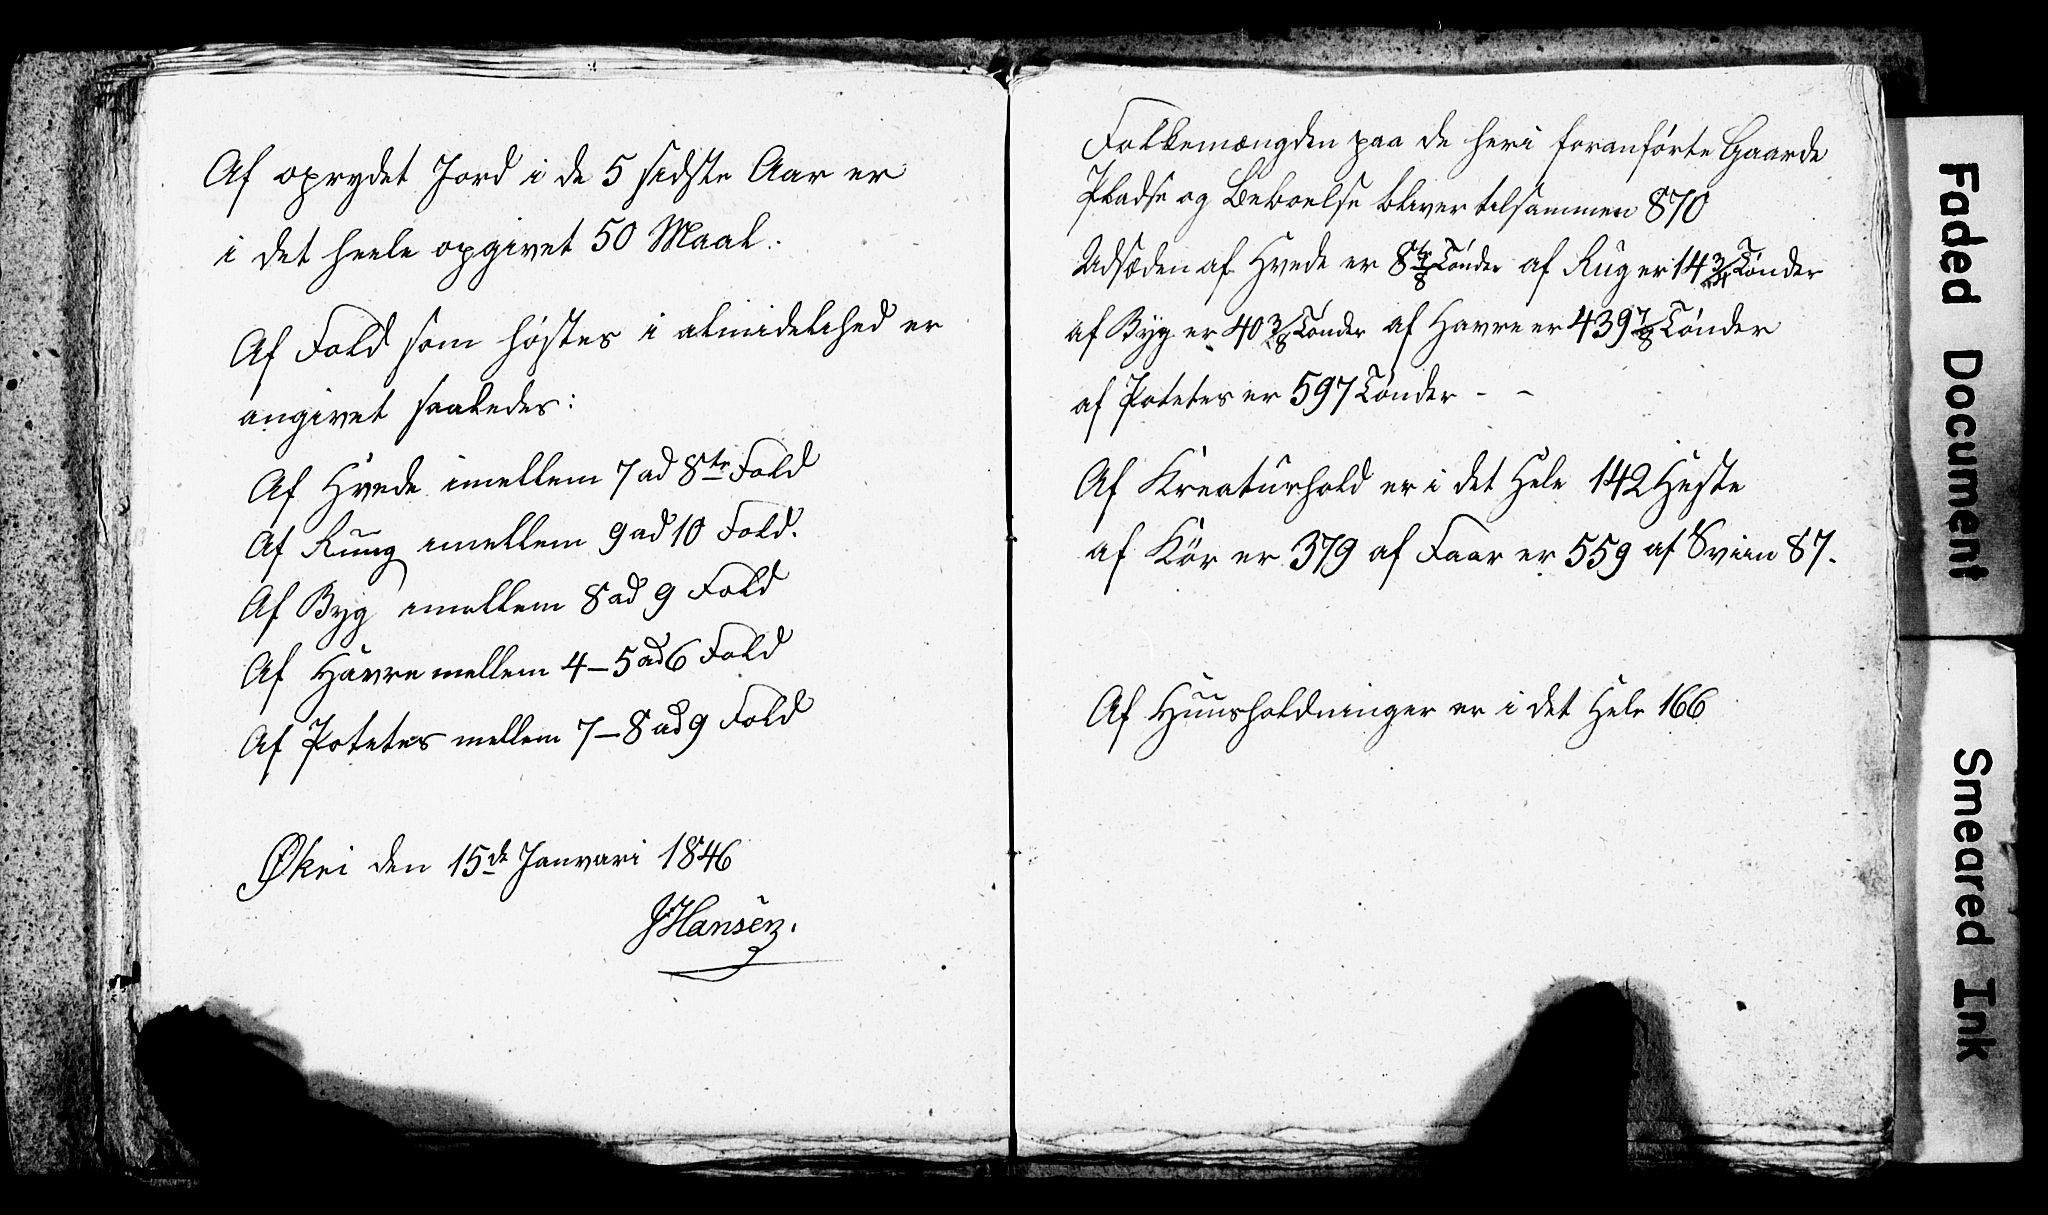 Af oprydet Jord i de 5 sidste Aar er
i det heele opgivet 50 Maal.
Af Fold som høstes i almidelihed er
angivet saaledes:
Af Hvede imellem 7 ad 8te Fold
Af Ruug imellem 9 ad 10 Fold.
Af Byg imellem 8 ad 9 Fold
Af Havre mellem 4-5 ad 6 Fold
Af Potetes mellem 7-8 ad 9 Fold
Øhei den 15de Janvari 1846
JHansen.
Folkemængden paa de heri foranførte Gaarde
Pladse og Beboelse bliver tilsammen 870
Udsæden af Hvede er 8 Tønder af Rug er 14 3/4 Tønder
af Byg er 40 3/8 Tønder af Havre er 439 7/8 Tønder
af Potetes er 597 Tønder - -
Af Kreaturhold er i det Hele 142 Heste
af Kör er 379 af Faar er 559 af Sviin 87.
Af Huusholdninger er i det Hele 166
Faded Document
Smeared Ink